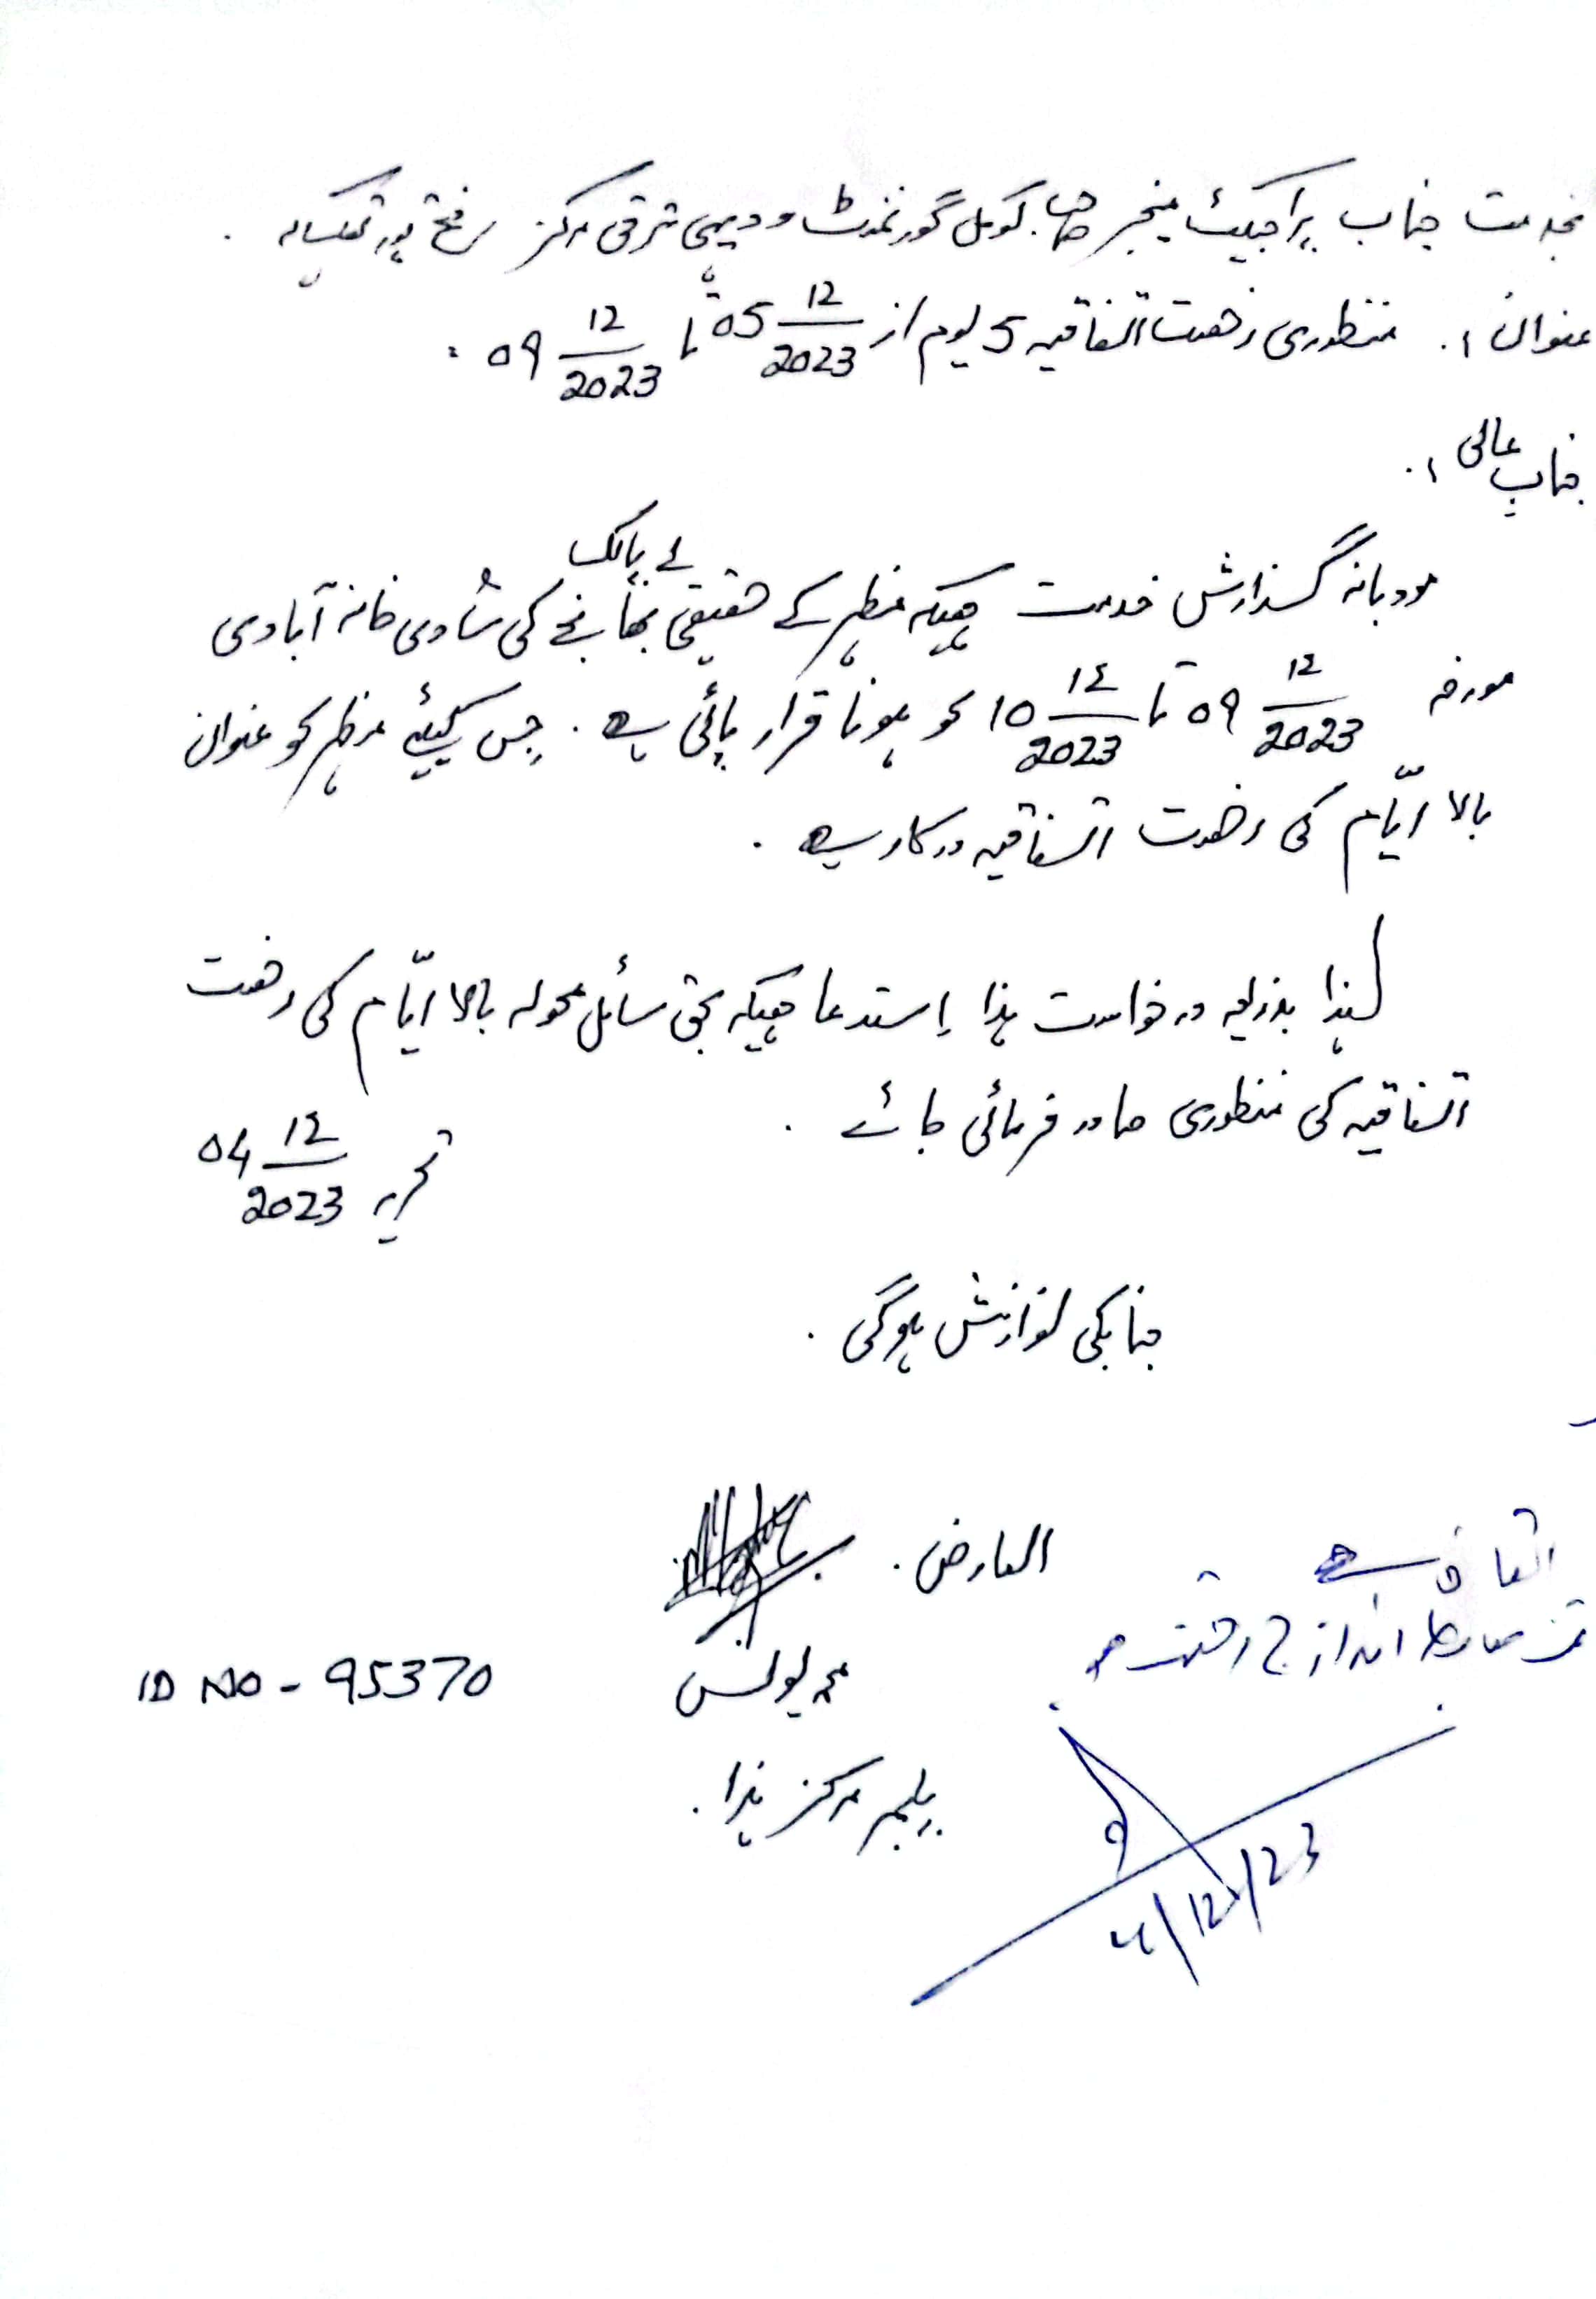 بخدمت جناب پراجیکٹ مینجر صاحب لوکل گورنمنٹ و دیہی ترقی مرکز فتح پور تھکیالہ .
عنوان :. منظوری رخصت اتفاقیہ 5 یوم از 05 12/2023 تا 09 12/2023 :
جناب عالی :.
لے پالک
مودبانہ گذارش خدمت ھیکہ مظہر کے حقیقی بھانجے کی شادی خانہ آبادی
مورخہ 09 12/2023 تا 10 12/2023 کو ہونا قرار پائی ہے . جس کیلئے مظہر کو عنوان
بالا ایّام کی رخصت اتفاقیہ درکار ہے .
لہذا بذریعہ درخواست ہذا اِستدعا ھیکہ بحق سائل محولہ بالا ایّام کی رخصت
اتفاقیہ کی منظوری صادر فرمائی جائے .
تحریر 04 12/2023
جنابکی نوازش ہوگی .
العارض .
محمد یونس
ID NO - 95370
بیلچر مرکز ہذا .
اتفاق ہے
اندراج رخصت
4/12/23